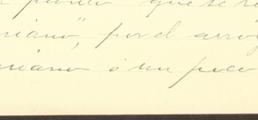 punto "que se
riano", por el arroy
riano ó un poco